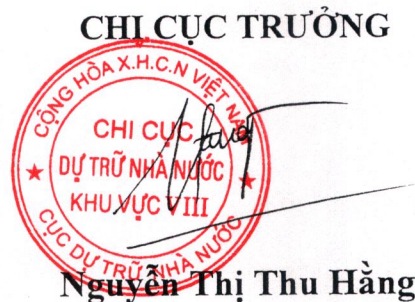 CHI CỤC TRƯỞNG
CỘNG HÒA X.H.C.N VIỆT NAM
CHI CỤC
DỰ TRỮ NHÀ NƯỚC
KHU VỰC VIII
CỤC DỰ TRỮ NHÀ NƯỚC
Nguyễn Thị Thu Hằng